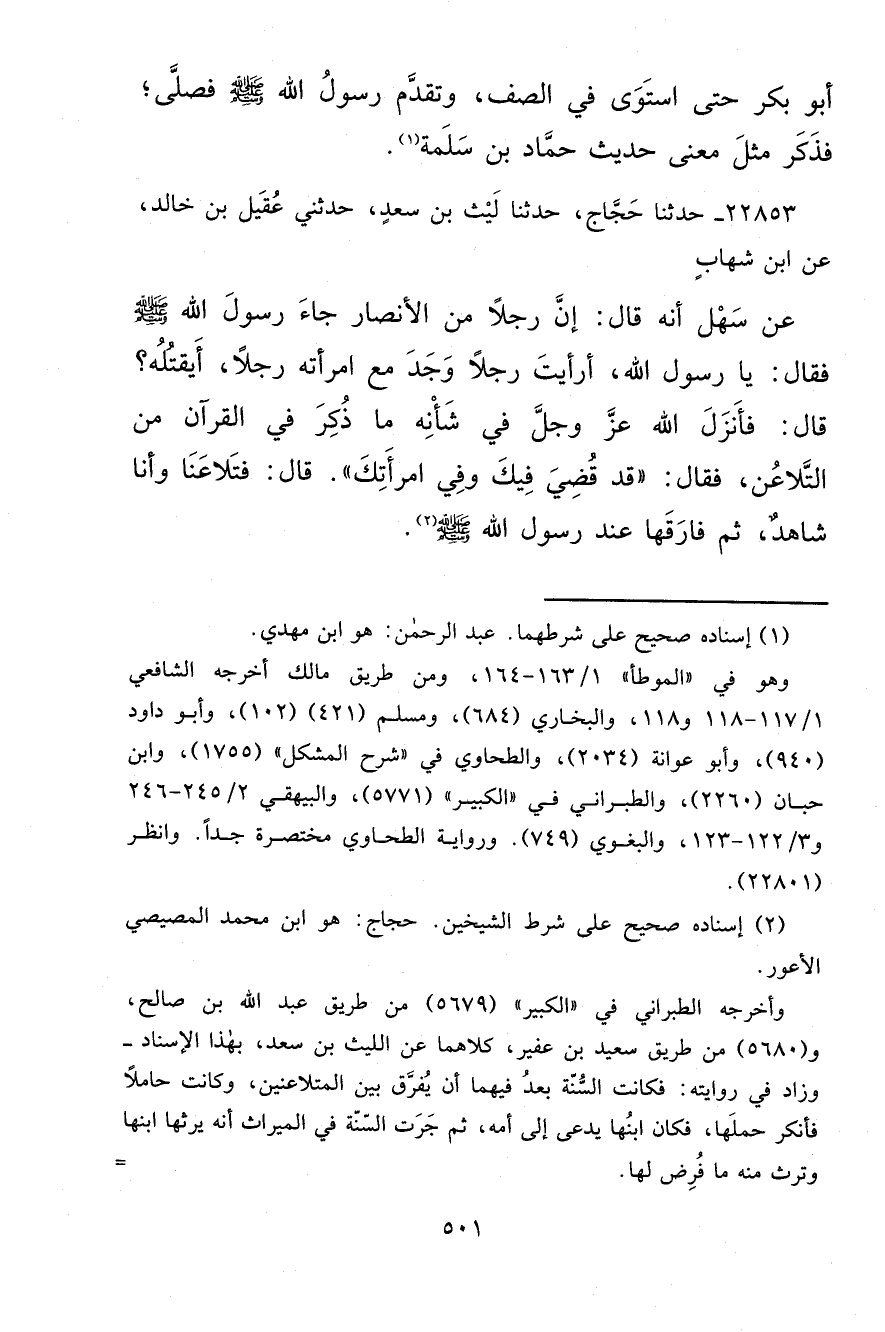 أبو بكر حتى استَوَى في الصف، وتقدَّم رسولُ الله ﷺ فصلَّى؛
فذَكَر مثلَ معنى حديث حمَّاد بن سَلَمة(١).
٢٢٨٥٣ـ حدثنا حَجَّاج، حدثنا لَيْث بن سعدٍ، حدثني عُقَيل بن خالد،
عن ابن شهابٍ
عن سَهْل أنه قال: إنَّ رجلاً من الأنصار جاءَ رسولَ الله ﷺ
فقال: يا رسول الله، أرأيتَ رجلاً وَجَدَ مع امرأته رجلاً، أَيقتُلُه؟
قال: فأَنزَلَ الله عزَّ وجلَّ في شَأْنِه ما ذُكِرَ في القرآن من
التَّلاعُن، فقال: «قد قُضِيَ فِيكَ وفِي امرأَتِكَ». قال: فتَلاعَنَا وأنا
شاهدٌ، ثم فارَقَها عند رسول الله ﷺ(٢).
(١) إسناده صحيح على شرطهما. عبد الرحمٰن: هو ابن مهدي.
وهو في «الموطأ» ١/ ١٦٣-١٦٤، ومن طريق مالك أخرجه الشافعي
١/ ١١٧-١١٨ و١١٨، والبخاري (٦٨٤)، ومسلم (٤٢١) (١٠٢)، وأبو داود
(٩٤٠)، وأبو عوانة (٢٠٣٤)، والطحاوي في «شرح المشكل» (١٧٥٥)، وابن
حبان (٢٢٦٠)، والطبراني في «الكبير» (٥٧٧١)، والبيهقي ٢/ ٢٤٥-٢٤٦
و٣/ ١٢٢-١٢٣، والبغوي (٧٤٩). ورواية الطحاوي مختصرة جداً. وانظر
(٢٢٨٠١).
(٢) إسناده صحيح على شرط الشيخين. حجاج: هو ابن محمد المصيصي
الأعور.
وأخرجه الطبراني في «الكبير» (٥٦٧٩) من طريق عبد الله بن صالح،
و(٥٦٨٠) من طريق سعيد بن عفير، كلاهما عن الليث بن سعد، بهٰذا الإسناد ـ
وزاد في روايته: فكانت السُّنّة بعدُ فيهما أن يُفرَّق بين المتلاعنين، وكانت حاملاً
فأنكر حملَها، فكان ابنُها يدعى إلى أمه، ثم جَرَت السّنّة في الميراث أنه يرثها ابنها
وترث منه ما فُرِض لها. =
٥٠١